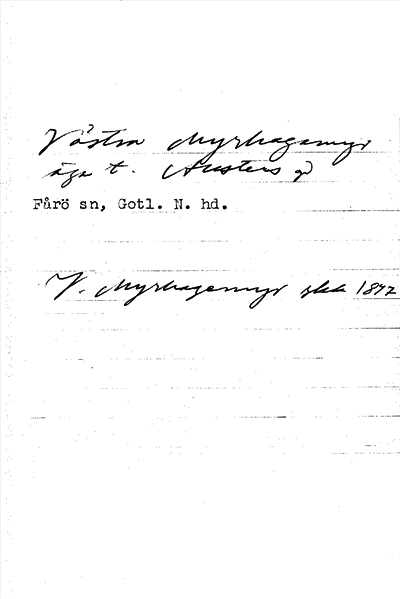 Västra Myrhagamyr
äga t. Austers gd
Fårö sn, Gotl. N. hd.
V. Myrhagamyr 1847